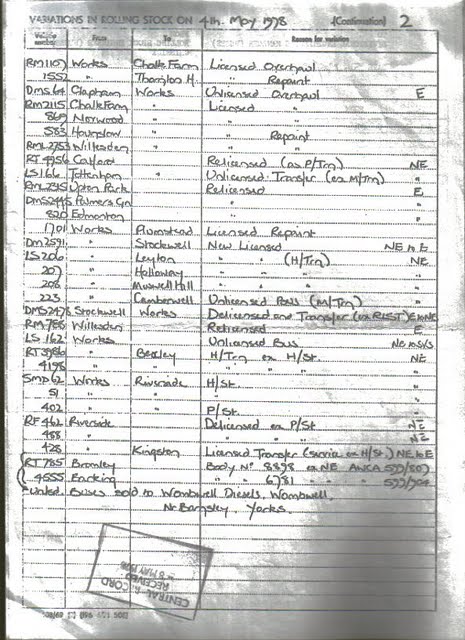 VARIATIONS IN ROLLING STOCK ON 4th. May 1978 (Continuation) 2
Vehicle number From To Reason for variation
RM1107 Works Chalk Farm Licensed Overhaul
1552 " Thornton H. " Repaint
DMS64 Clapham Works Unlicensed Overhaul E
RM2115 Chalk Farm " Licensed "
869 Norwood " " "
583 Hounslow " " Repaint
RML2753 Willesden " " "
RT4956 Catford Relicensed (as P/Trn) NE
LS166 Tottenham Unlicensed Transfer (ex M/Trn) "
RML2345 Upton Park Relicensed E
DMS2445 Palmers Gn " "
820 Edmonton " "
1701 Works Plumstead Licensed Repaint
DM2591 " Stockwell New Licensed NE to E
LS206 " Leyton " " (H/Trn) NE
207 " Holloway " " " "
208 " Muswell Hill " " " "
223 " Camberwell Unlicensed Bus (M/Trn) "
DMS2476 Stockwell Works Delicensed and Transfer
RM788 Willesden Relicensed E
LS162 Works Unlicensed Bus
RT3986 " Bexley H/Trn ex H/St. NE
4198 " " " "
SMD62 Works Riverside H/St. "
51 " " " "
402 " " P/St. "
RF462 Riverside Delicensed ex P/St NE
488 " " " " NE
428 " Kingston Licensed Transfer (Service ex H/St.) NE to E
RT785 Bromley Body No 8398 ex NE AWCA 599/807
4555 Barking " " 6781 " " " 599/904
Buses sold to Wombwell Diesels, Wombwell,
Nr Barnsley, Yorks.
CENTRAL RECORD
RECEIVED
8 MAY 1978